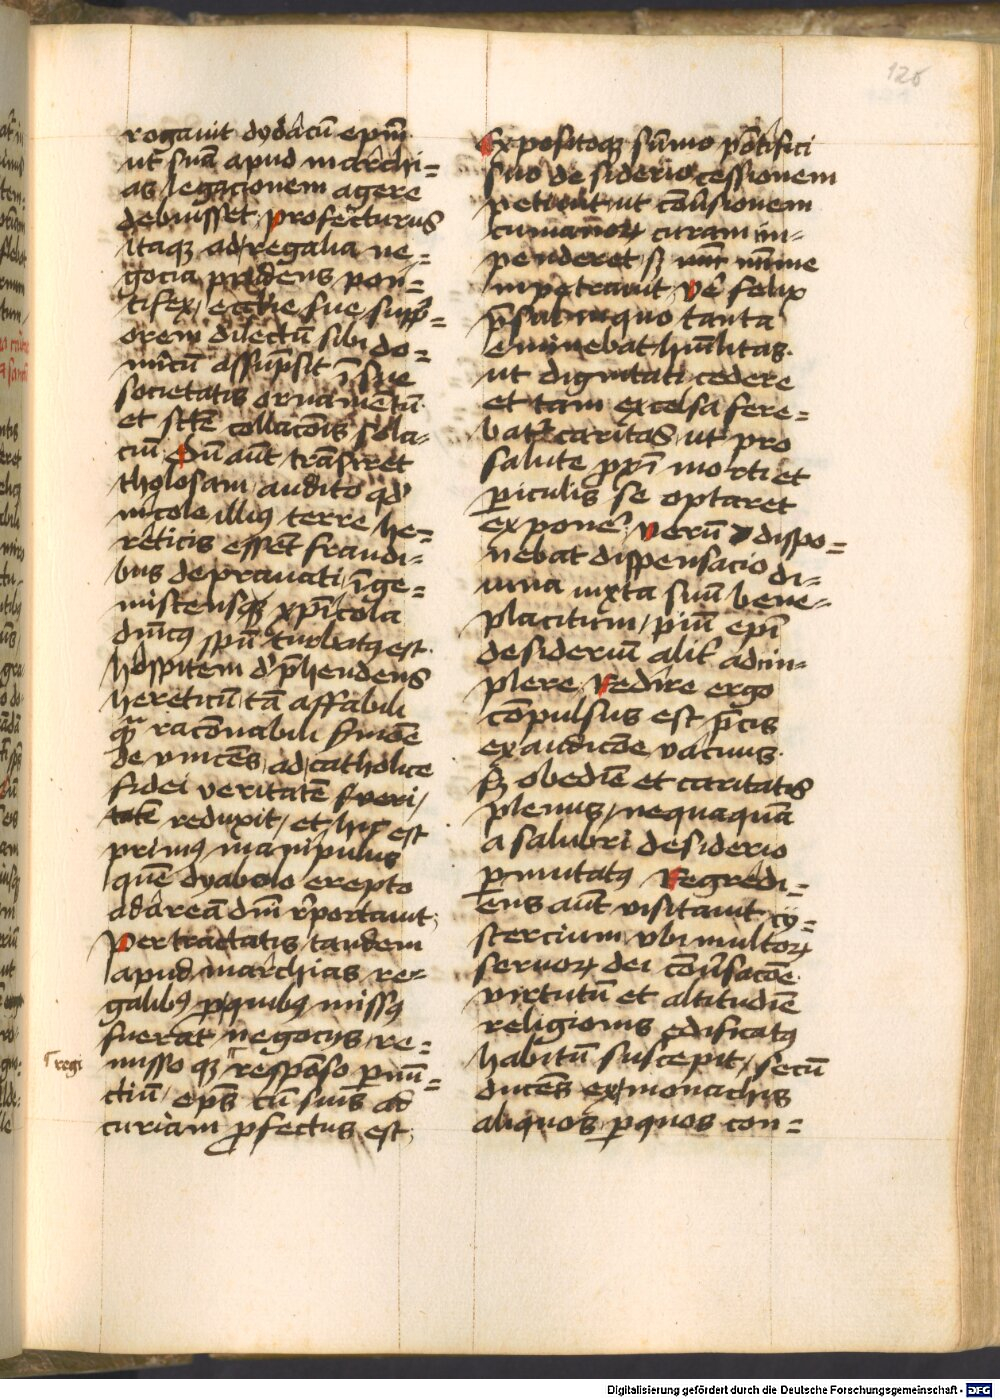 126
rogauit dydacū epm̄
ut suā apud marchi=
as legacionem agere
debuisset, profecturus
itaqꝫ ad regalia ne=
gocia prudens pon=
tifex, ecclīe sue supp̄=
orem dilectū sibi do=
micū assūpsit ī sue
societatis ornamentū
et sctē collacōis sola=
ciū Dū aūt trāsiret
tholosam audito qd'
incole illiꝰ terre he=
reticis essēt fraudi=
bus deprauati, īge=
miscensqꝫ xp̄icola
dn̄icꝰ spū turbatꝰ est.
hospitem dep̄hendens
hereticū tā affabili
quā racōnabili s̄mōe
de uincēs ad catholice
fidei veritatē
reduxit, et hic est
primꝰ manipulus
quē dyabolo erepto
ad areā dn̄i rēportauit,
Pertractatis tandem
apud marchias re=
galibꝰ ꝓ quibꝰ missꝰ
fuerat negociis, re=
misso qꝫ respōso p nū=
ciū, ep̄s cū suis ad
curiam ꝓfectus est,
regi
Expositoqꝫ sūmo pōtifici
suo desiderio cessionem
petiuit, ut cōuersionem
cumanoꝝ curam im=
penderet, sꝫ minime
inpetrauit, Vere felix
p̄sul in quo tanta
eminebat hūilitas.
ut dignitati cedere
et tam excelsa fere=
batur caritas, ut pro
salute pxi morti et
periculis se optaret
exponere. Verū dispo=
nebat dispensacio di=
uina iuxta suū bene=
placitum, piū epi
desideriū aliter adim=
plere, Redire ergo
compulsus est p̄cis
exaudicōe vacuus.
sꝫ obediē et caritatis
plenus, nequaquā
a salubri desiderio
permutatꝰ Regredi=
ens aūt visitauit cy=
stercium, vbi multoꝝ
seruoꝝ dei cōuersacōe
virtutū et altitudīe
religionis edificatꝰ
habitū suscepit, secū
ducēs ex monachis
aliquos, p quos con=
Digitalisierung gefördert durch die Deutsche Forschungsgemeinschaft - DFG